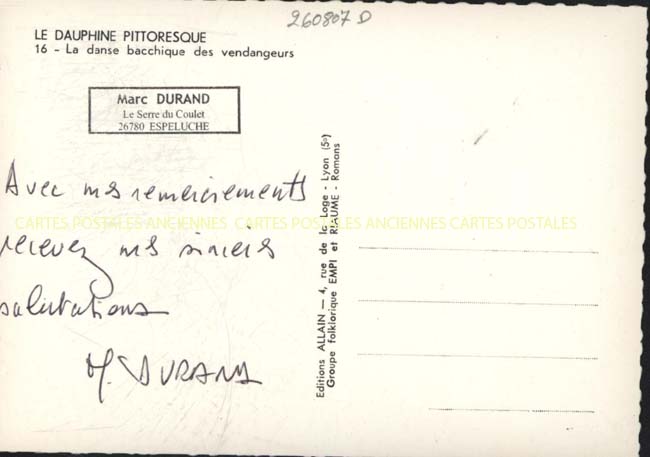 260807 D
LE DAUPHINE PITTORESQUE
16 - La danse bacchique des vendangeurs
Marc DURAND
Le Serre du Coulet
26780 ESPELUCHE
Avec mes remerciements
CARTES POSTALES ANCIENNES CARTES POSTALES ANCIENNES CARTES POSTALES
recevez mes sincères
salutations
M. DURAND
Editions ALLAIN — 4, rue de la Loge - Lyon (5e)
Groupe folklorique EMPI et RIAUME - Romans